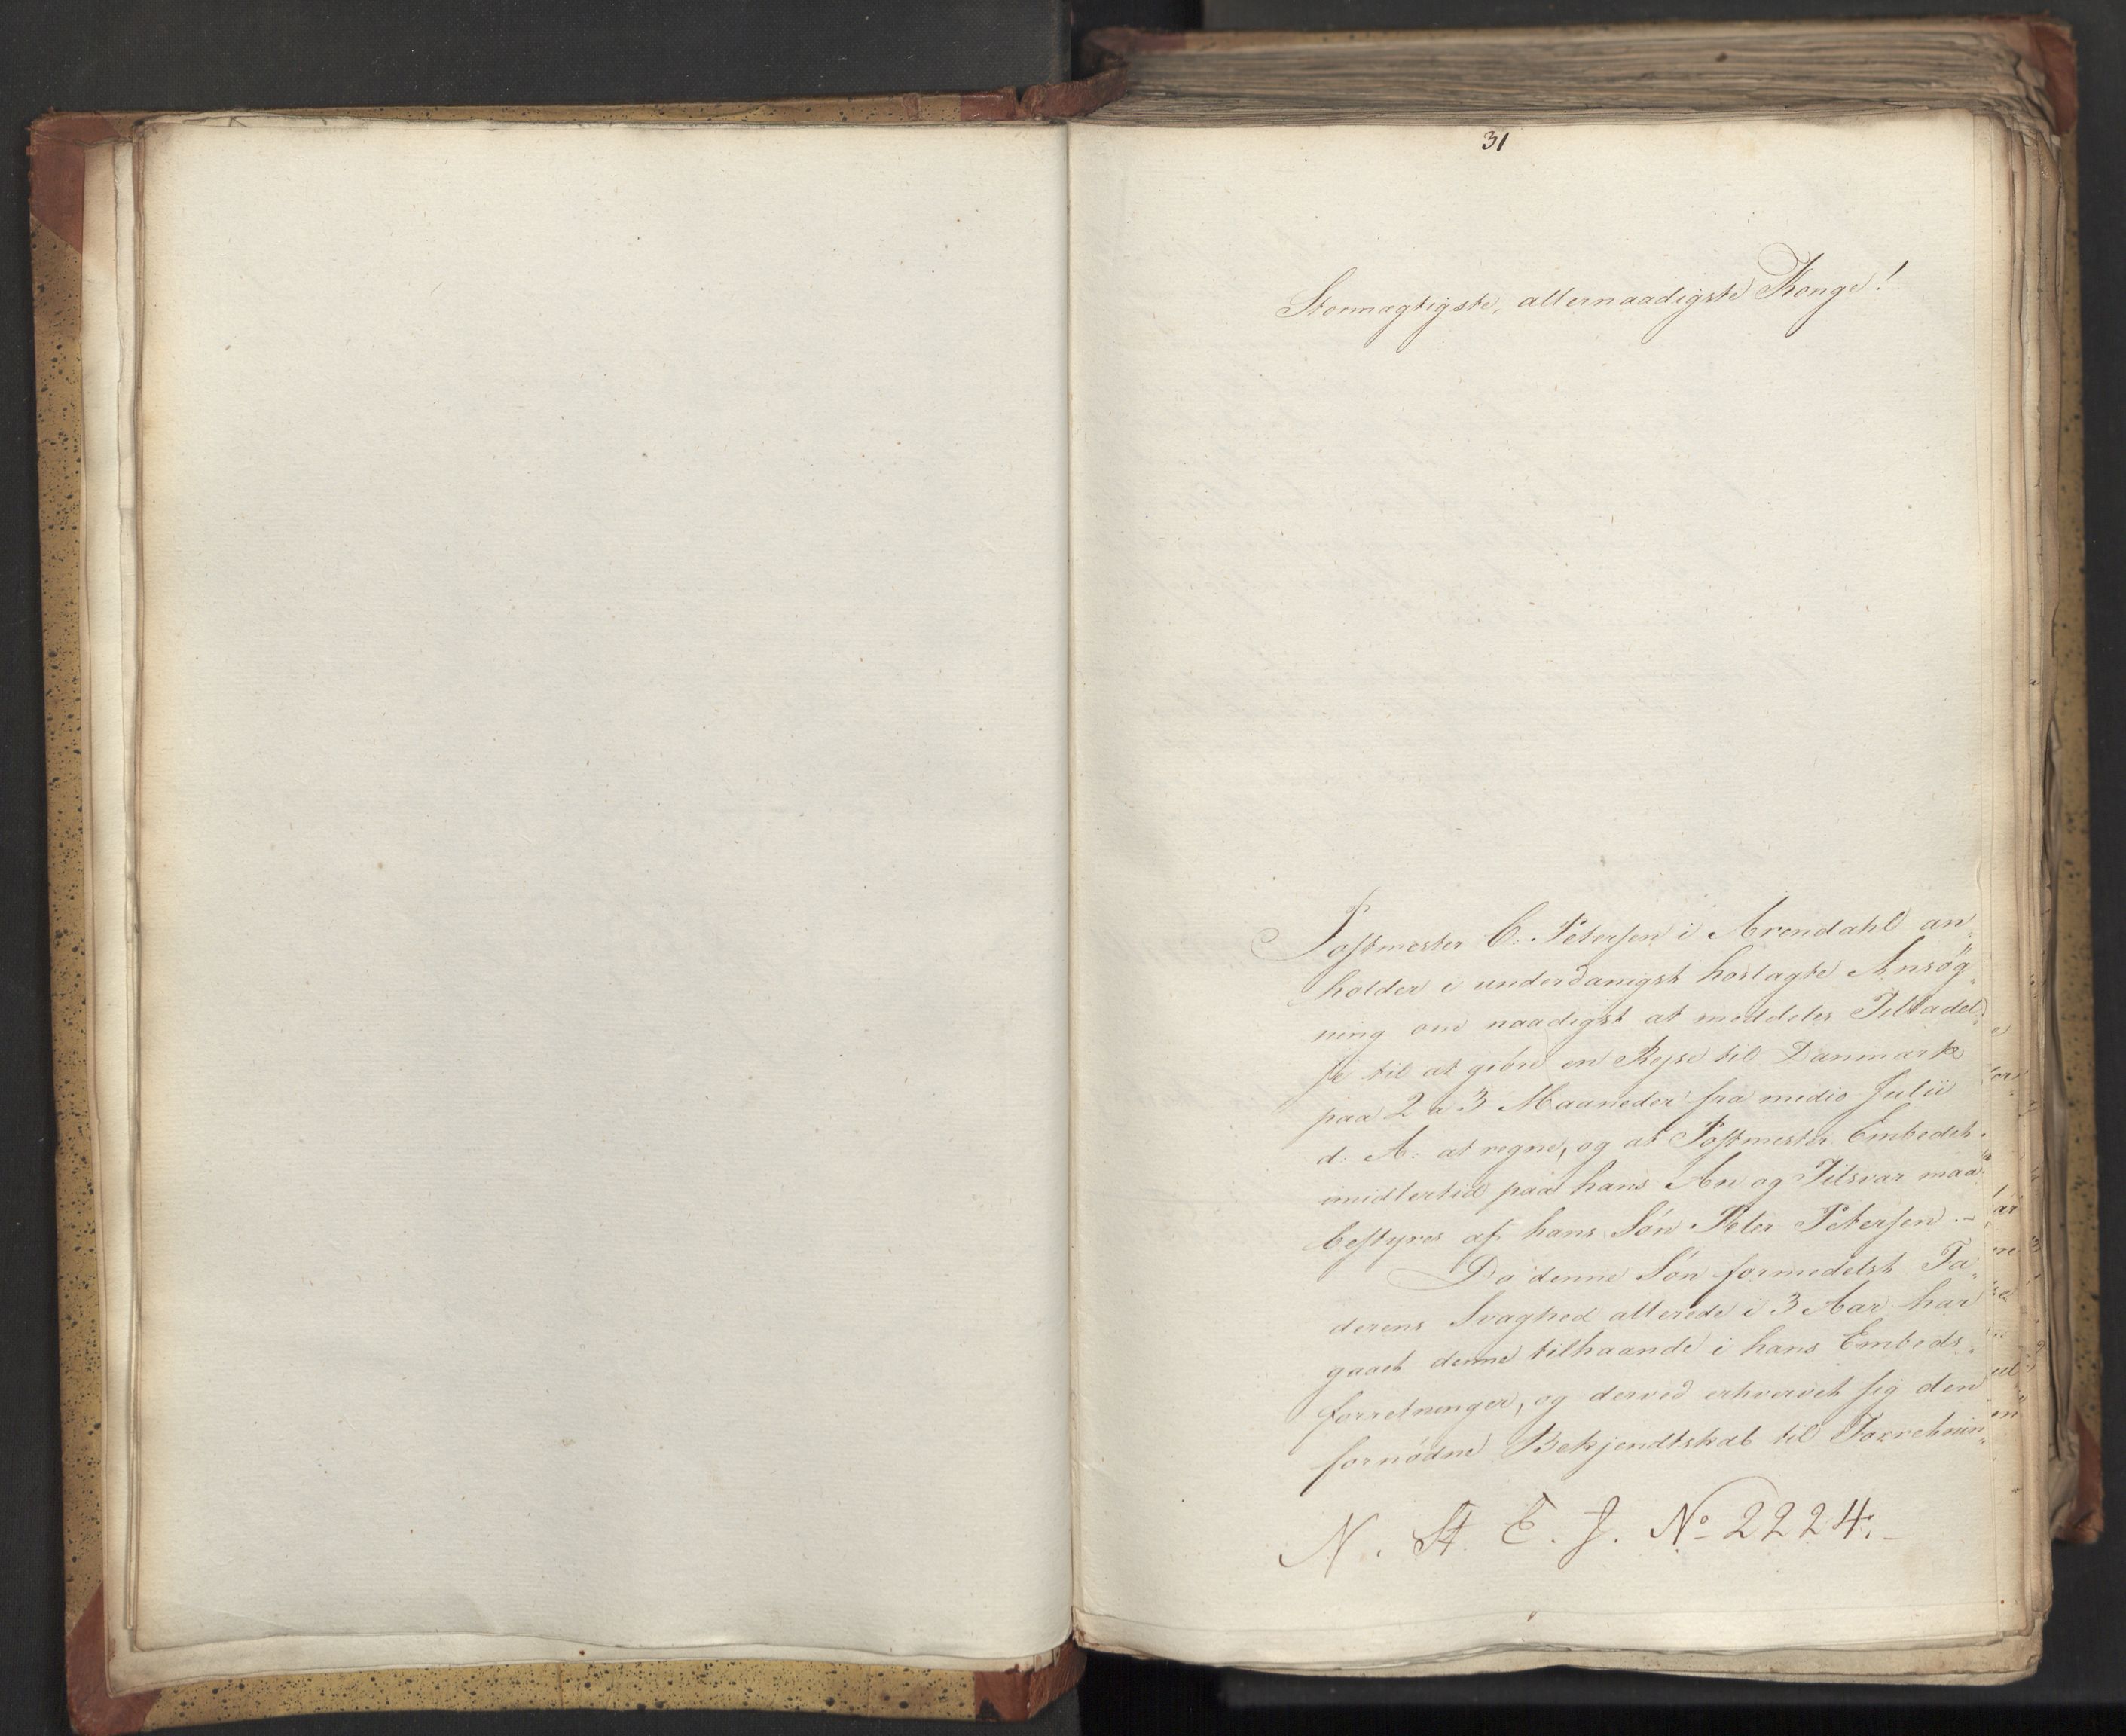 31
Stormægtigste, allernaadigste Konge!
Postmester C: Petersen i Arendahl an„
holder i underdanigst hoslagte Ansøg„
ning om naadigst at meddeles Tilladel„
se til at giöre en Rejse til Danmark
paa 2 a 3 Maaneder fra medio Julii
d: A: at regne, og at Postmester Embedet
imidlertid paa hans An og Tilsvar maa
bestyres af hans Sön Peter Petersen.–
Da denne Sön formedelst Fa„
derens Svaghed allerede i 3 Aar har
gaaet denne tilhaande i hans Embeds„
forretninger, og derved erhvervet sig den
fornødne Bekjendtskab til Forretnin„
N. St. E. J. No 2224.–